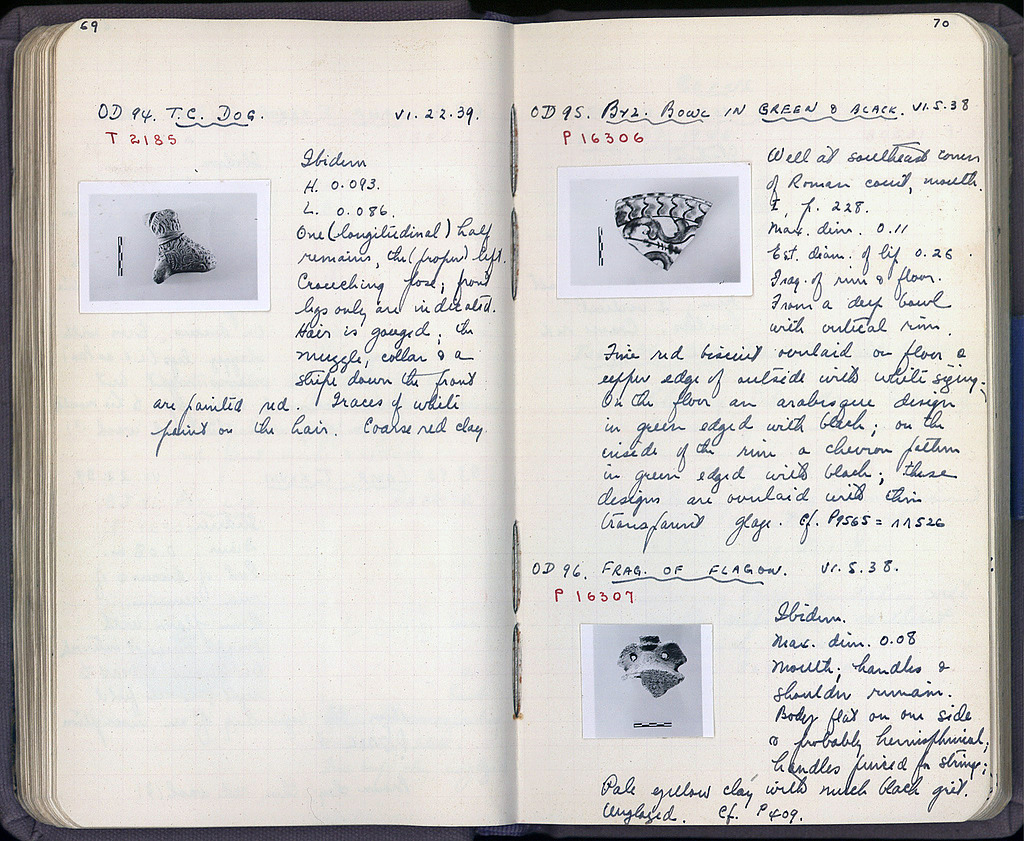 69
OD 94. T.C. DOG. VI.22.39.
T 2185
Ibidem
H. 0.093.
L. 0.086.
One (longitudinal) half
remains, the (proper) left.
Crouching pose; front
legs only are indicated.
Hair is gouged; the
muzzle, collar & a
stripe down the front
are painted red. Traces of white
paint on the hair. Coarse red clay.
70
OD 95. BYZ. BOWL IN GREEN & BLACK. VI.5.38
P 16306
Well at southeast corner
of Roman court, mouth.
p. 228.
Max. dim. 0.11
Est. diam. of lip 0.26.
Frag. of rim & floor.
From a deep bowl
with vertical rim.
Fine red biscuit overlaid on floor &
upper edge of outside with white sizing.
On the floor an arabesque design
in green edged with black; on the
inside of the rim a chevron pattern
in green edged with black; these
designs are overlaid with thin
transparent glaze. Cf. P9565 = ΛΛ526
OD 96. FRAG. OF FLAGON. VI.5.38.
P 16307
Ibidem.
Max. dim. 0.08
Mouth; handles &
shoulder remain.
Body flat on one side
& probably hemispherical;
handles pierced for string;
Pale yellow clay with much black grit.
Unglazed. Cf. P409.